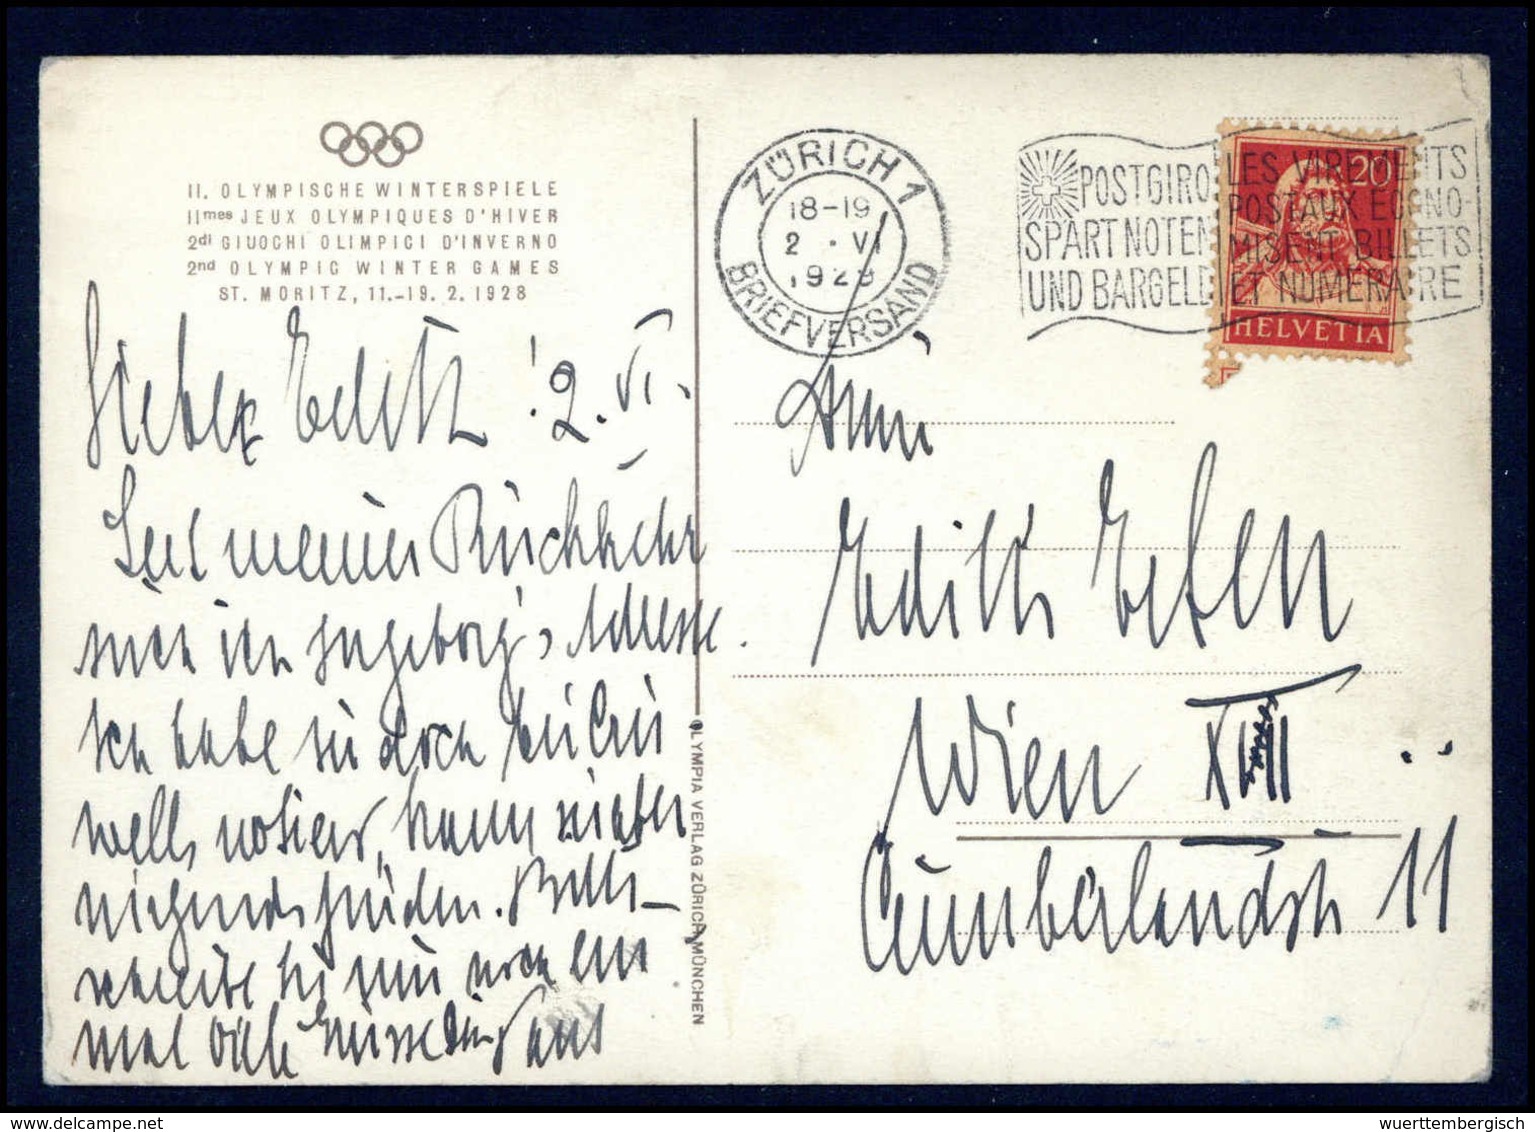 II. OLYMPISCHE WINTERSPIELE
IImes JEUX OLYMPIQUES D'HIVER
2di GIUOCHI OLIMPICI D'INVERNO
2nd OLYMPIC WINTER GAMES
ST. MORITZ, 11.-19. 2. 1928
Edith! 2. VI.
Seit meiner Rückkehr
such ich Ingeborg's Adresse.
Ich habe sie doch bei
notiert, kann sie aber
nirgends finden. Bitte
schreibe sie mir noch ein
mal
OLYMPIA VERLAG ZÜRICH, MÜNCHEN
ZÜRICH 1
18-19
2 . VI
1928
BRIEFVERSAND
POSTGIRO
SPART NOTEN
UND BARGELD
LES VIREMENTS
POSTAUX ECONO-
MISENT BILLETS
ET NUMERAIRE
20
HELVETIA
Edith
Wien XIII
Cumberlandstr 11